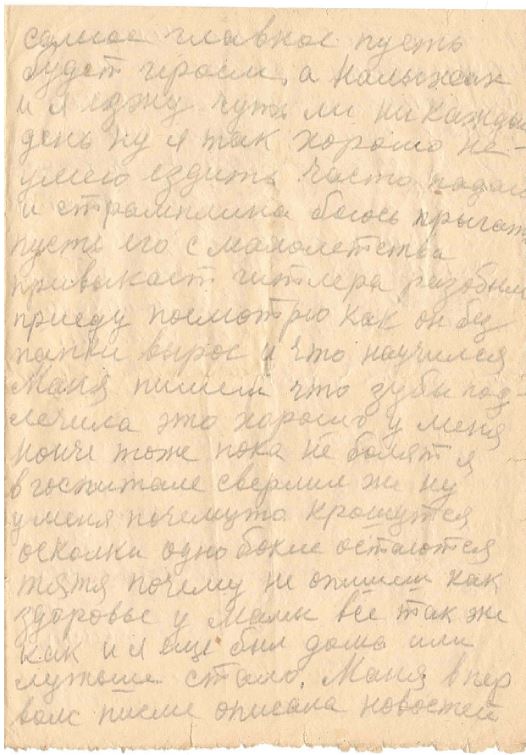 самое главное пусть
будет героем, а на лыжах
и я езжу чуть ли ни каждый
день ну я так хорошо не-
умею ездить часто падаю
и страмплина боюсь прыгать
пусть его с малолетства
привыкает гитлера разобьем
приеду посмотрю как он без
папки вырос и что научился
Маня пишет что зубы под-
лечила это хорошо у меня
нонче тоже пока не болят я
в госпитале сверлил же ну
у меня почемуто крошутся
осколки одно бокие остаются
тятя почему не опишеш как
здоровье у мамы всё так же
как и я еще был дома или
лутьше стало. Маня в пер
вом писме описала новостей